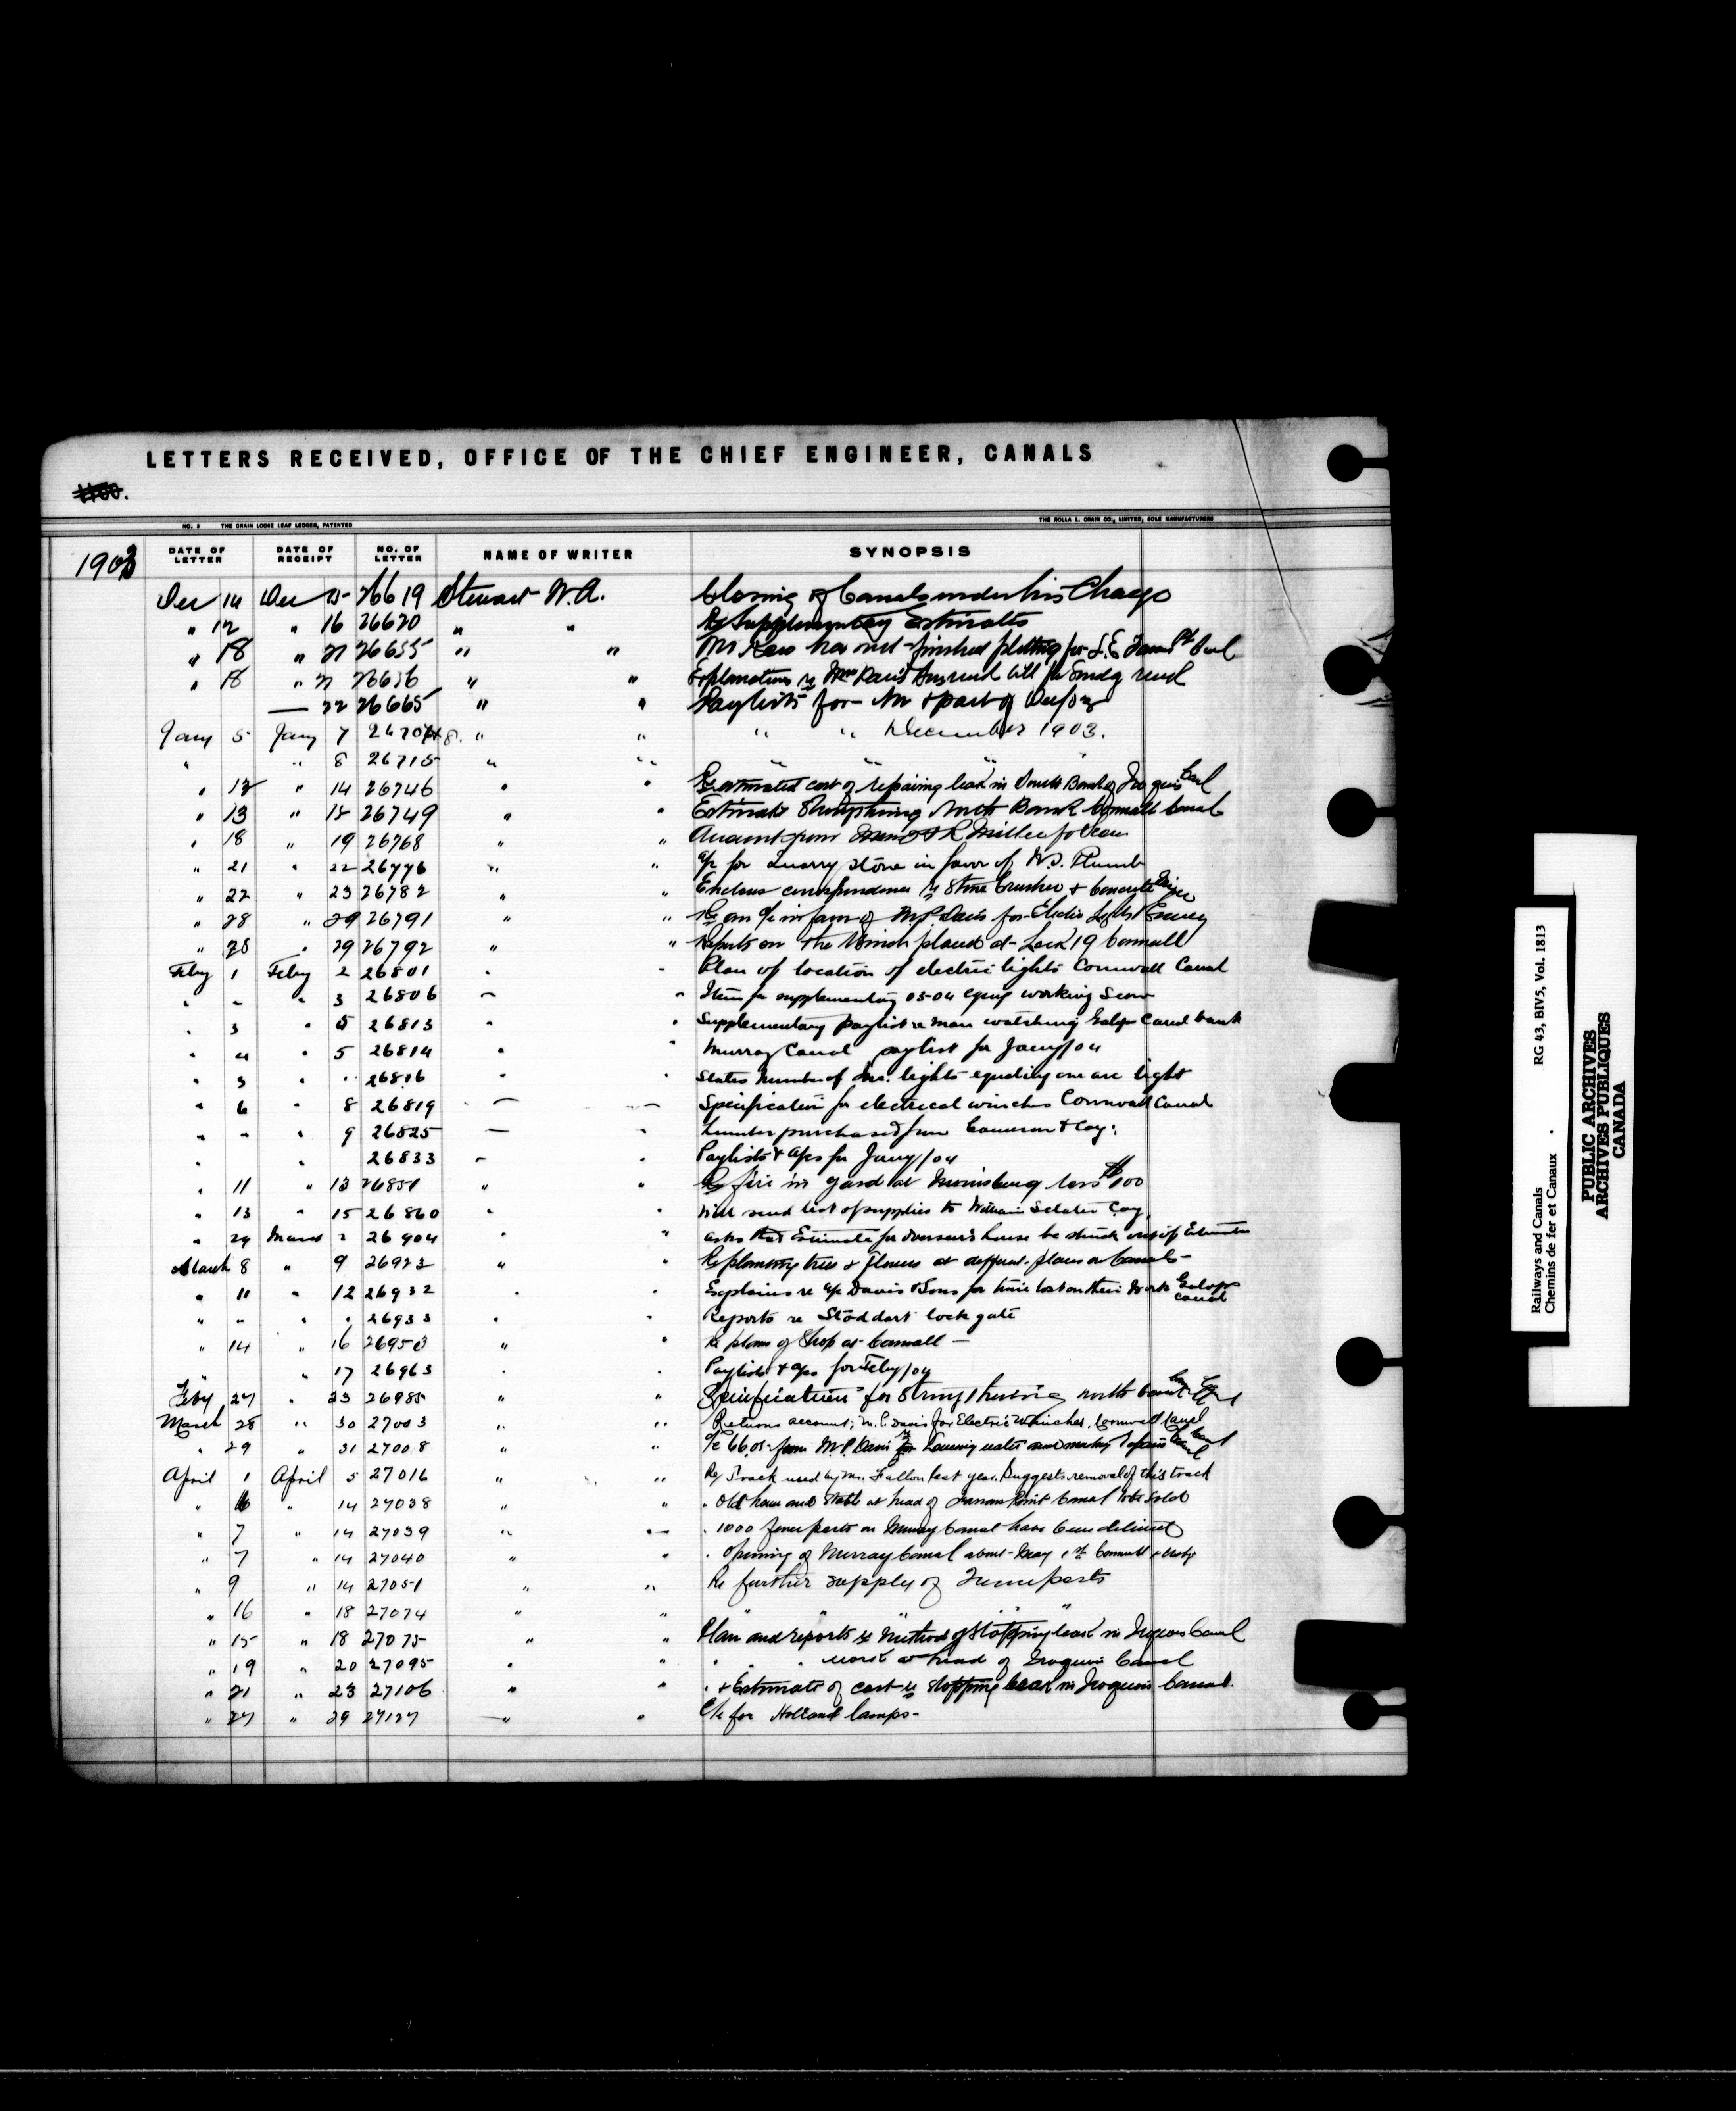 LETTERS RECEIVED, OFFICE OF THE CHIEF ENGINEER, CANALS
NO. 3 THE CRAIN LOOSE LEAF LEDGER, PATENTED THE ROLLA L. CRAIN CO., LIMITED, SOLE MANUFACTURERS
1903 DATE OF LETTER DATE OF RECEIPT NO. OF LETTER NAME OF WRITER SYNOPSIS
Dec 14 Dec 15 26619 Stewart W.A. Closing of Canals under his Charge
" 12 " 16 26620 " " Re Supplementary Estimates
" 18 " 21 26655 " " Mr has not finished plotting for Canal
" 18 " 21 26656 " " Explanations re Davis
— 22 26665 " " Paylists for Nov & part of Dec/03
Jany 5 Jany 7 26704 " " " " December 1903.
" " 8 26715 " " " " "
" 12 " 14 26746 " " Re estimated cost of repairing leak in South Bank of Iroquois Canal
" 13 " 15 26749 " " Estimate Strengthening North Bank Cornwall Canal
" 18 " 19 26768 " " Account from Miller for
" 21 " 22 26776 " " a/c for Quarry stone in favor of Plumb
" 22 " 23 26782 " " Encloses correspondence re Stone Crusher & Concrete Mixer
" 28 " 29 26791 " " Re an a/c in favor of M.P. Davis for Electric Light & Energy
" 28 " 29 26792 " " Reports on the Winch placed at Lock 19 Cornwall
Feby 1 Feby 2 26801 " " Plan of location of electric lights Cornwall Canal
" " " 3 26806 " " Item for supplementary 03-04 working Scow
" 3 " 5 26813 " " Supplementary paylist re man watching Galops Canal bank
" 4 " 5 26814 " " Murray Canal paylist for Jany/04
" 5 " " 26816 " " States number of Inc. lights equaling one arc light
" 6 " 8 26819 " " Specification for electrical winches Cornwall Canal
" " " 9 26825 " " Lumber purchased from Cameron & Coy:
" " 26833 " " Paylists & a/cs for Jany/04
" 11 " 13 26851 " " Re fire in yard at Morrisburg loss $100
" 13 " 15 26860 " " Will send list of supplies to William Sclater Coy.
" 29 March 2 26904 " " asks that Estimate for overseer's house be struck out of Estimates
March 8 " 9 26923 " " Re planting trees & flowers at different places on Canals -
" 11 " 12 26932 " " Explains re a/c Davis & Sons for time lost on their work Galops Canal
" " " " 26933 " " Reports re Stoddart lock gate
" 14 " 16 26950 " " Re plans of Shop at Cornwall —
" " 17 26963 " " Paylists & a/cs for Feby/04
Feby 27 " 23 26985 " " Specifications for Strengthening north bank
March 28 " 30 27003 " " Returns account; M.P. Davis for Electric Winches, Cornwall Canal
" 29 " 31 27008 " " a/c from M.P. Davis re Lowering water and making repairs Canal
April 1 April 5 27016 " " Re Track used by Mr. Fallon last year. Suggests removal of this track
" 6 " 14 27038 " " " Old house and stable at head of Farrans Point Canal to be Sold
" 7 " 14 27039 " " " 1000 fence posts on Murray Canal have been delivered
" 7 " 14 27040 " " " Opening of Murray Canal about May 1st Cornwall
" 9 " 14 27051 " " Re further supply of Fence posts
" 16 " 18 27074 " " " " " " "
" 15 " 18 27075 " " Plan and reports re method of stopping leak in Iroquois Canal
" 19 " 20 27095 " " " " work at head of Iroquois Canal
" 21 " 23 27106 " " " & Estimate of cost re stopping leak in Iroquois Canal.
" 27 " 29 27127 " " a/c for Holland lamps -
Railways and Canals RG 43, BIV5, Vol. 1813
Chemins de fer et Canaux
PUBLIC ARCHIVES
ARCHIVES PUBLIQUES
CANADA